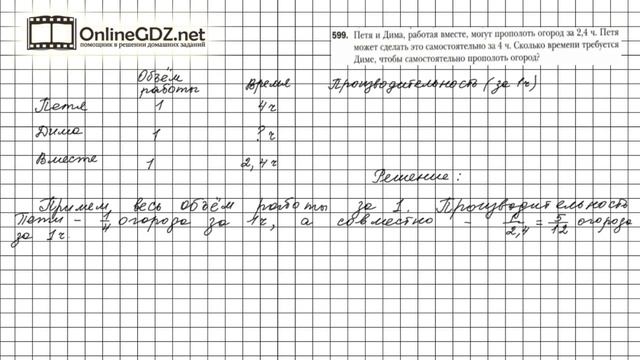 OnlineGDZ.net
помощник в решении домашних заданий
599. Петя и Дима, работая вместе, могут прополоть огород за 2,4 ч. Петя
может сделать это самостоятельно за 4 ч. Сколько времени требуется
Диме, чтобы самостоятельно прополоть огород?
Объём
работы Время Производительность (за 1ч)
Петя 1 4ч
Дима 1 ? ч
Вместе 1 2,4ч
Решение:
Примем весь объём работы за 1. Производительность
Пети - 1/4 огорода за 1ч, а совместно - 1/2,4 = 5/12 огорода
за 1ч.